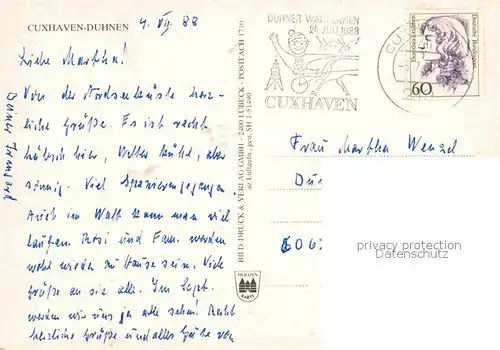 CUXHAVEN-DUHNEN
4. VII. 88
Liebe Martha!
Von der Nordseeküste herz-
liche Grüße. Es ist recht
hübsch hier, Wetter kühl, aber
sonnig. Viel Spazierengegangen.
Auch im Watt kann man viel
laufen. Rosi und Fam. werden
wohl wieder zu Hause sein. Viele
Grüße an sie alle. Im Sept.
werden wir uns ja alle sehen! Recht
herzliche Grüße und alles Gute von
Deiner
BILD-DRUCK & VERLAG GMBH · 2400 LÜBECK · POSTFACH 1710
az Luftaufn., gen. SH 1-51490
DUHNER WATTRENNEN
24. JULI 1988
CUXHAVEN
CUX
Deutsche Bundespost
Dorothea Erxleben
60
Frau Martha Wenzel
Du
606
privacy protection
Datenschutz
KARTE